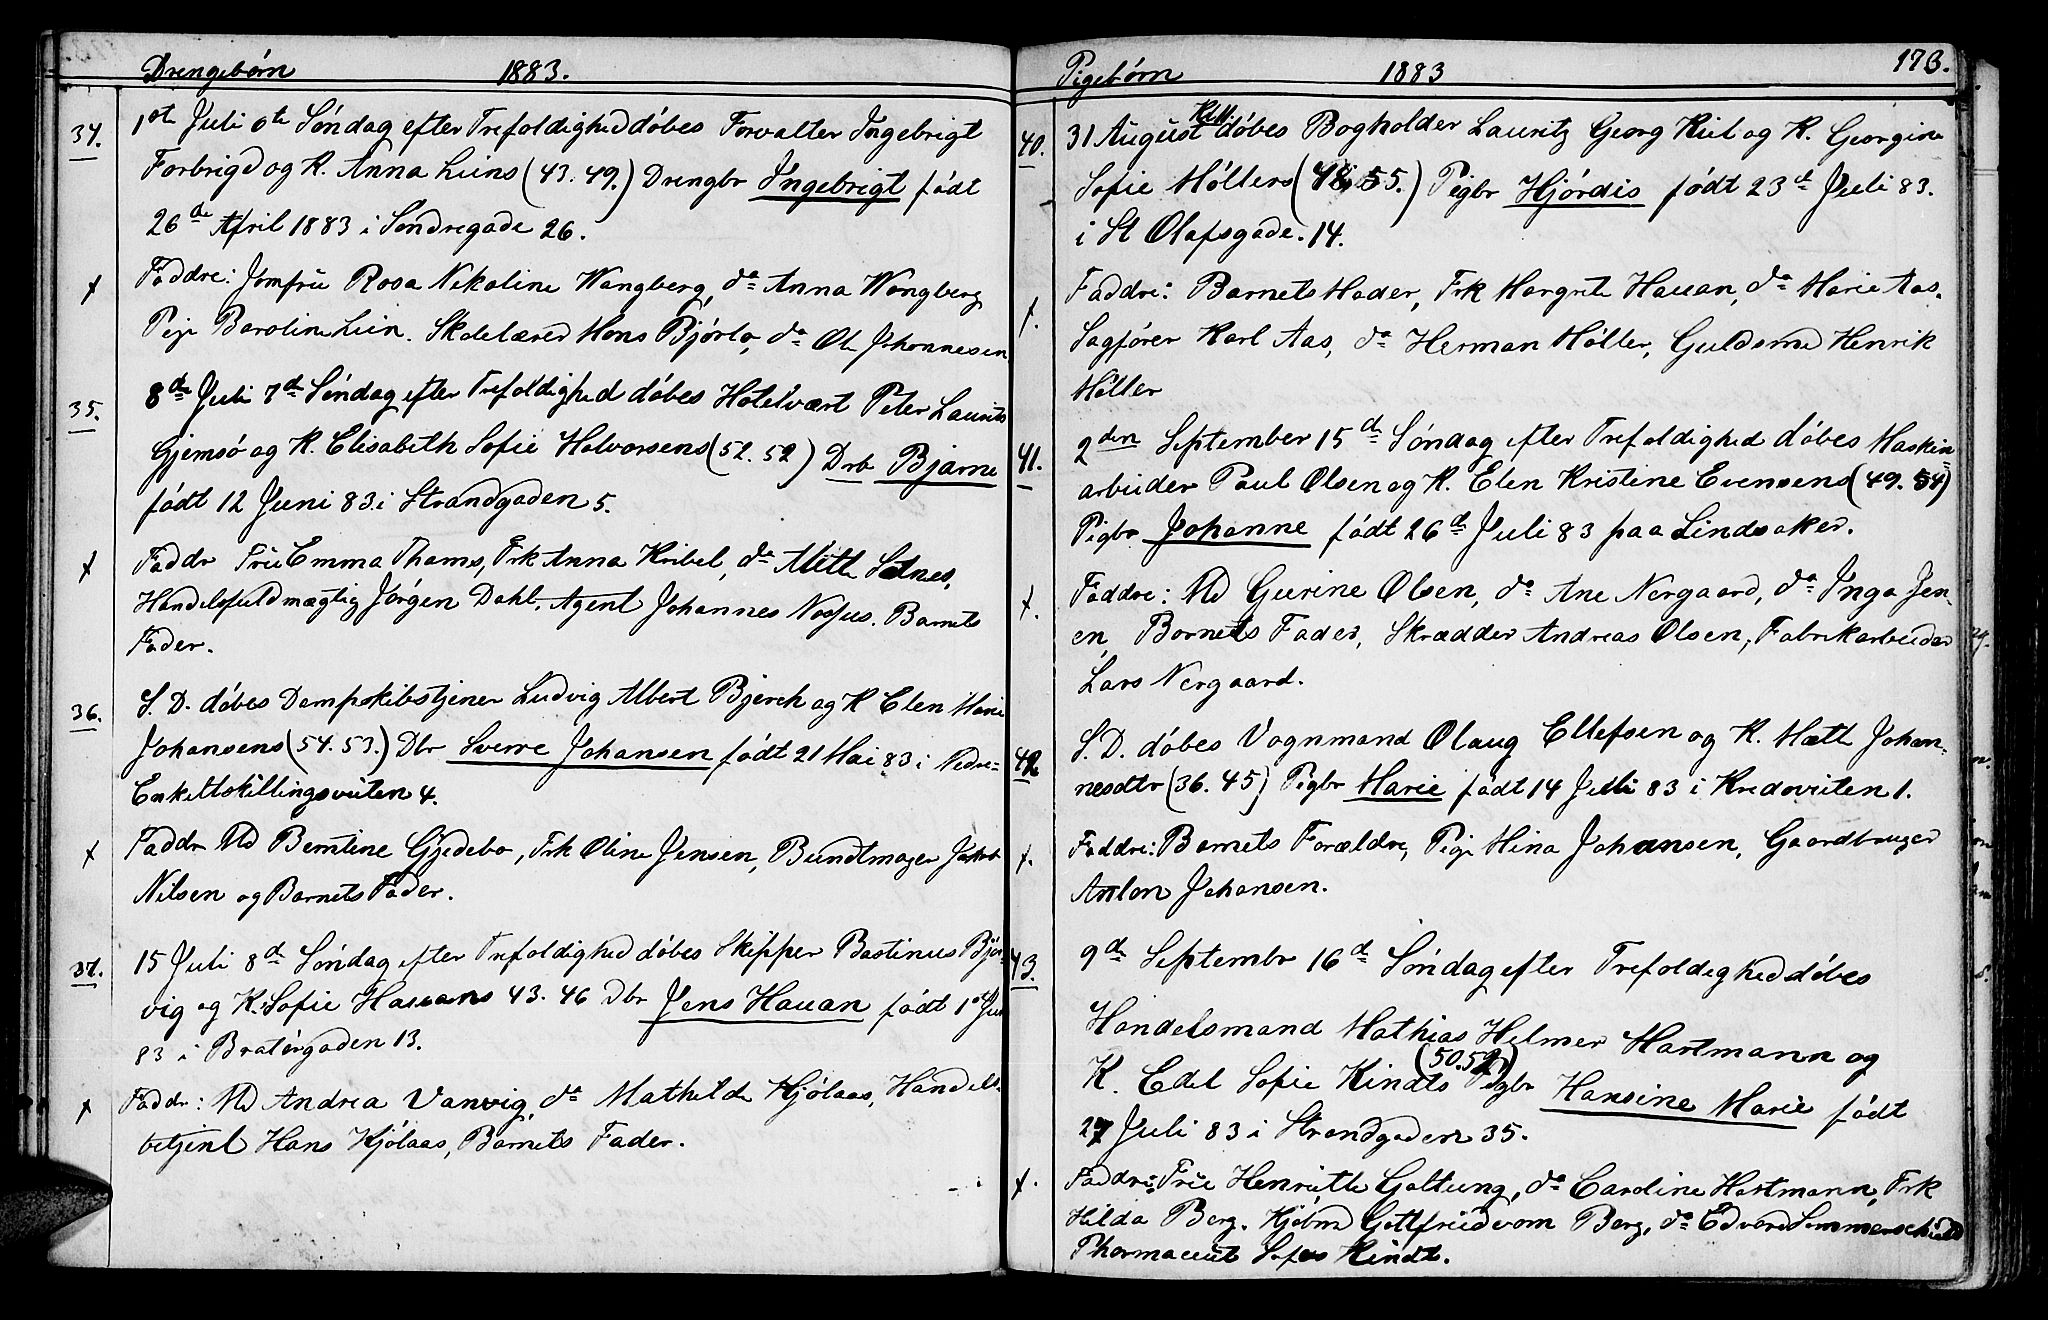 Drengebørn 1883.
34. 1ste Juli 6te Søndag efter Trefoldighed døbes Forvalter Ingebrigt
Forbrigd og K. Anna Liens (43. 49.) Drengbr Ingebrigt født
26de April 1883 i Søndregade 26.
x Faddre: Jomfru Rosa Nikoline Wangberg, do Anna Wangberg
Pige Beroline Lien. Skolelærer Hans Bjørlo, do Ole Johannesen
35. 8de Juli 7de Søndag efter Trefoldighed døbes Hotelvært Peter Laurits
Gjemsø og K. Elisabeth Sofie Halvorsens (52. 52) Drb Bjarne
født 12 Juni 83 i Strandgaden 5.
x Faddr Frue Emma Thams, Frk Anna Kribel, do Mette Selnes,
Handelsfuldmægtig Jørgen Dahl, Agent Johannes Barnets
Fader.
36. S. D. døbes Dampskibstjener Ludvig Albert Bjerch og K Elen Marie
Johansens (54. 53.) Dbr Sverre Johansen født 21 Mai 83 i Nedre=
Enkeltskillingsveiten 4.
x Faddr Md Berntine Gjedebo, Frk Oline Jensen, Bundtmager Jakob
Nilsen og Barnets Fader.
37. 15 Juli 8de Søndag efter Trefoldighed døbes Skipper Bastinus Bjør-
vig og K. Sofie Hauans 43. 46 Dbr Jens Hauan født 1ste Ju
83 i Bratørgaden 13.
x Faddr: Md Andrea Vanvig, do Mathilde Kjølaas, Handels-
betjent Hans Kjølaas, Barnets Fader.
Pigebørn 1883 173.
40. 31 August døbes Bogholder Lauritz Georg Kiel og K. Georgine
Sofie Møllers (48, 55.) Pigbr Hjørdis født 23de Juli 83.
i St Olafsgade. 14.
x. Faddre: Barnets Moder, Frk Margrete Hauan, do Marie Aas.
Sagfører Karl Aas, do Herman Møller, Guldsmed Henrik
Møller
41. 2den September 15de Søndag efter Trefoldighed døbes Maskin=
arbeider Paul Olsen og K. Elen Kristine Evensens (49. 54)
Pigbr Johanne født 26de Juli 83 paa Lindsaker.
x. Faddre: Md Gurine Olsen, do Ane Nergaard, do Inga Jen-
en, Barnets Fader, Skrædder Andreas Olsen, Fabrikarbeider
Lars Nergaard.
42. S. D. døbes Vognmand Olaug Ellefsen og K. Mette Johan-
nesdtr (36. 45) Pigbr Marie født 14 Juli 83 i Kredoveiten 1.
x. Faddre: Barnets Forældre, Pige Mina Johansen, Gaardbruger
Anton Johansen.
43. 9de Septembr 16de Søndag efter Trefoldighed døbes
Handelsmand Mathias Helmer Hartmann og
K. Edel Sofie Kindts (50. 52) Pigbr Hansine Marie født
27 Juli 83 i Strandgaden 35.
x. Faddre: Frue Henriette Galtung, do Caroline Hartmann, Frk
Hilda Berg. Kjøbmd Gottfried vom Berg, do Edvard Sommerschield
Pharmaceut Sofus Kindt.